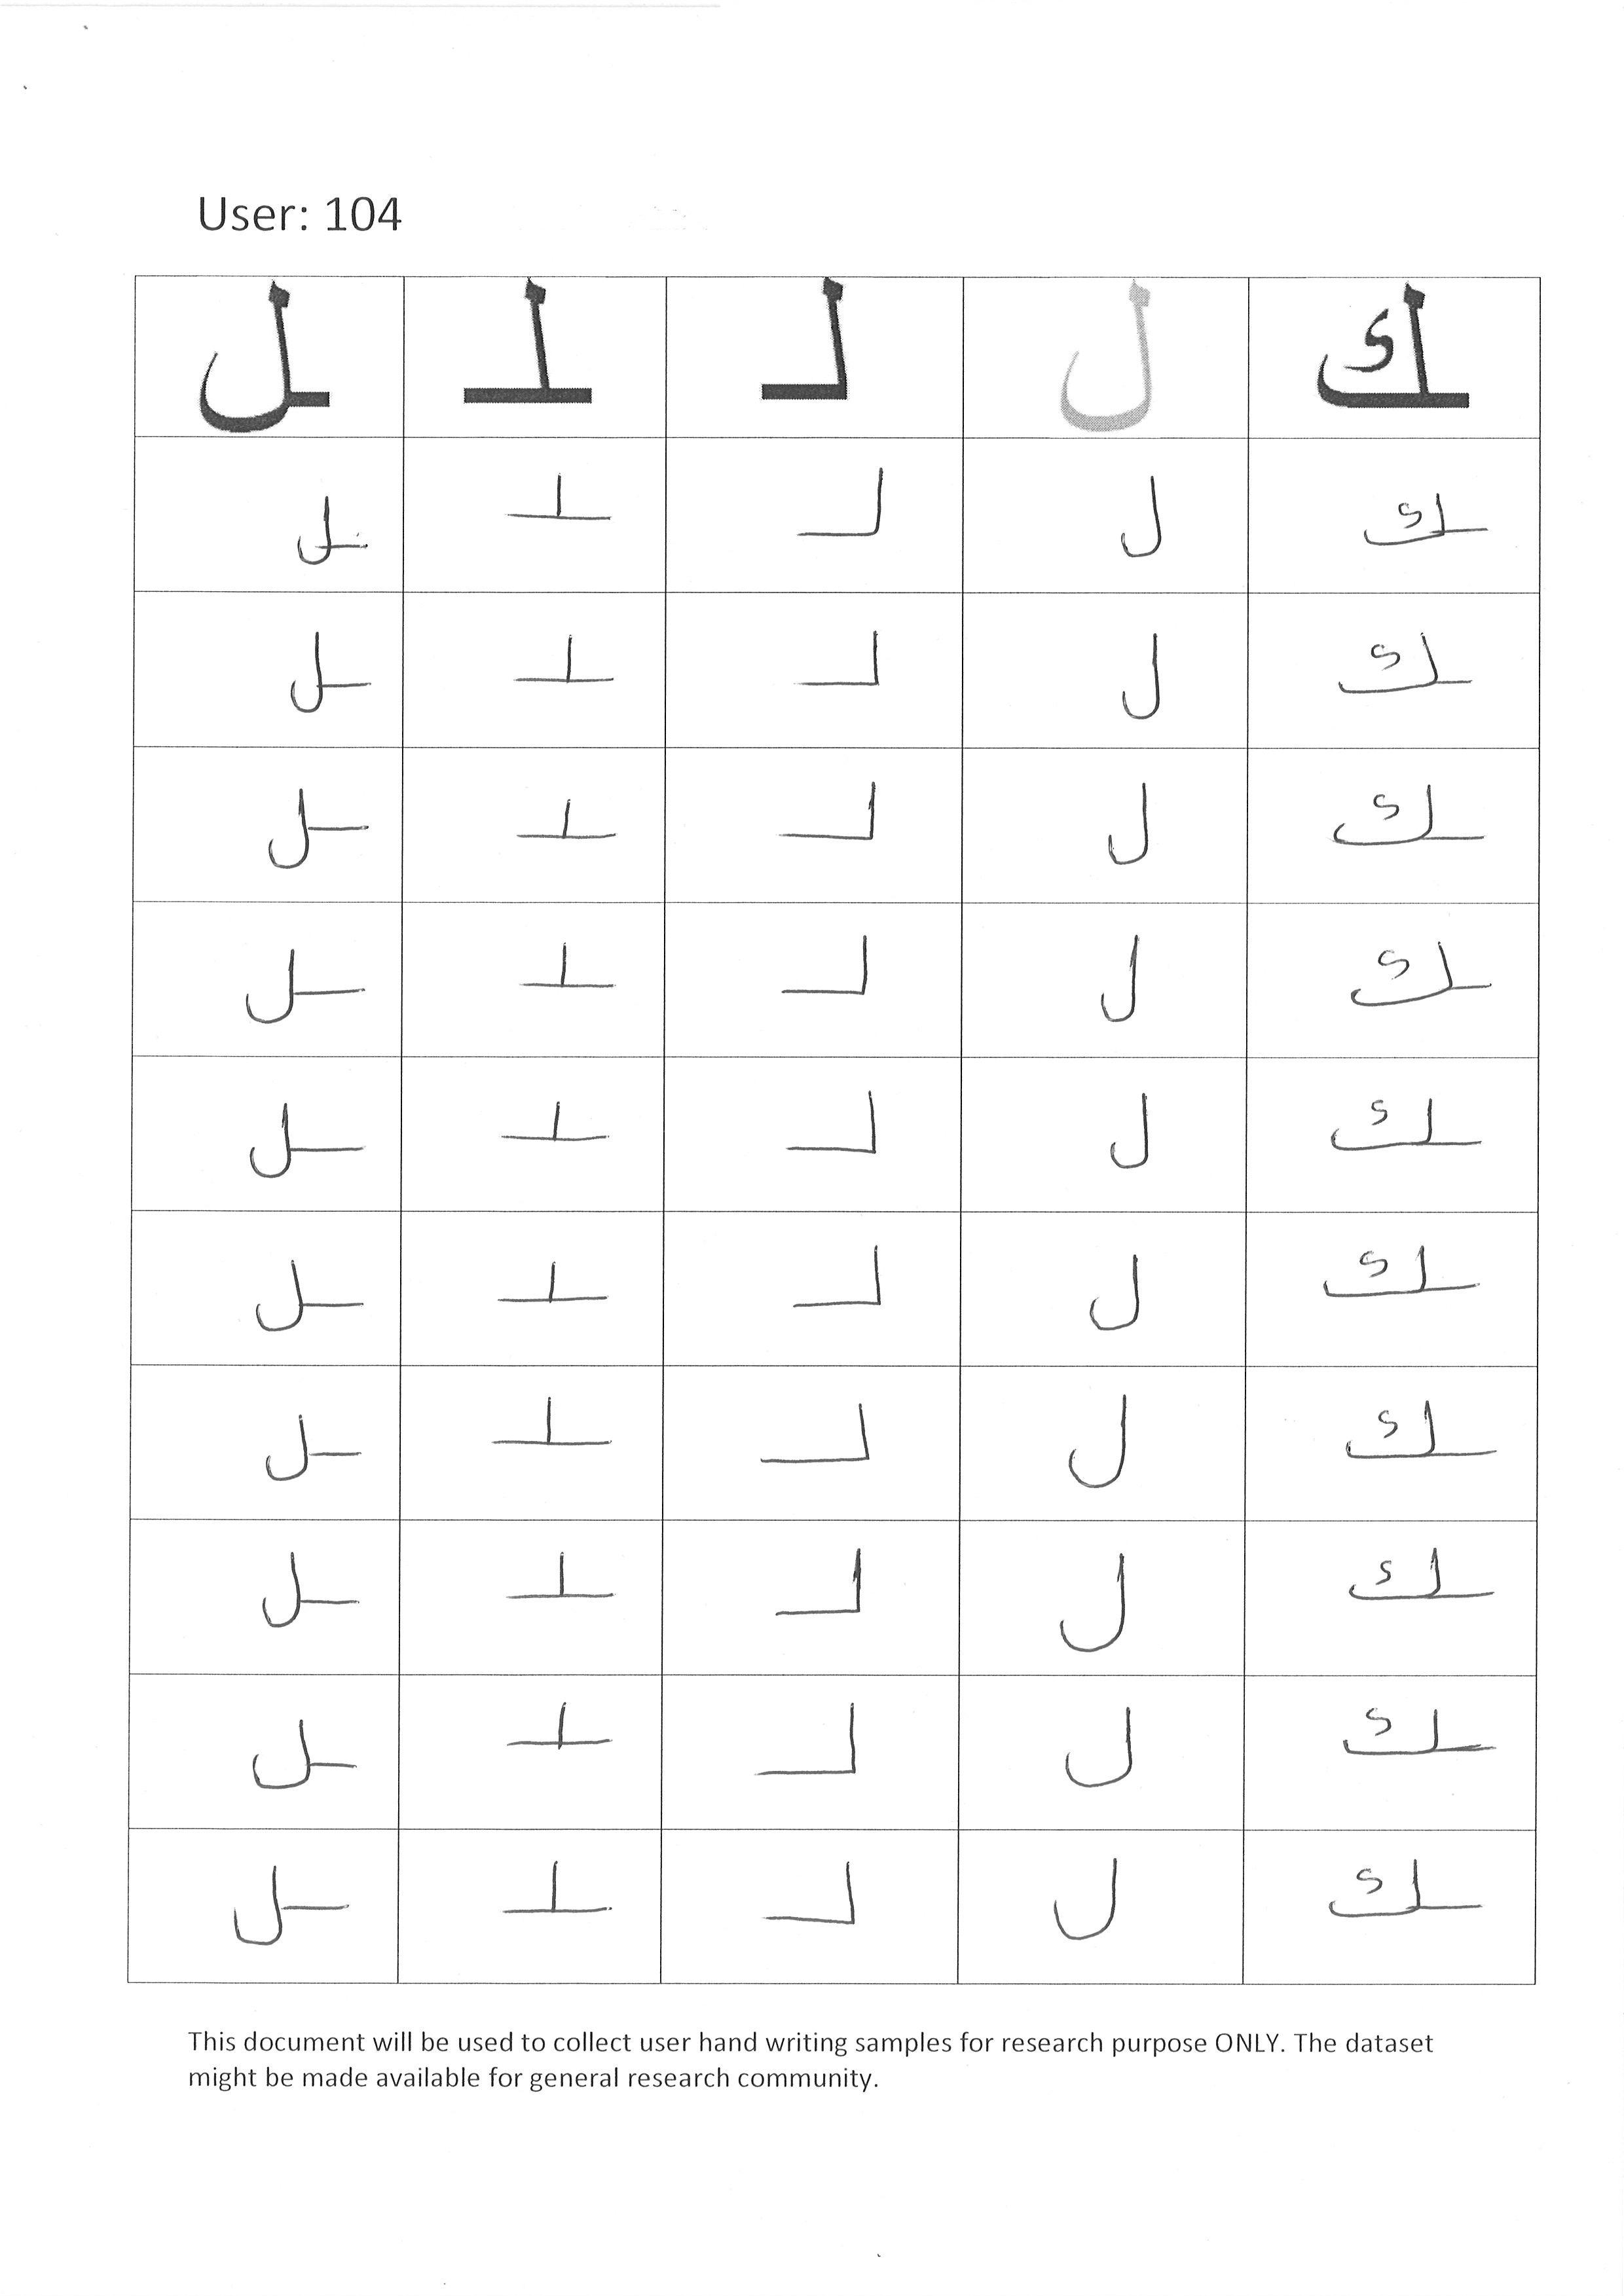 User: 104
ـل ـلـ لـ ل ـك
ـل ـلـ لـ ل ـك
ـل ـلـ لـ ل ـك
ـل ـلـ لـ ل ـك
ـل ـلـ لـ ل ـك
ـل ـلـ لـ ل ـك
ـل ـلـ لـ ل ـك
ـل ـلـ لـ ل ـك
ـل ـلـ لـ ل ـك
ـل ـلـ لـ ل ـك
ـل ـلـ لـ ل ـك
This document will be used to collect user hand writing samples for research purpose ONLY. The dataset
might be made available for general research community.